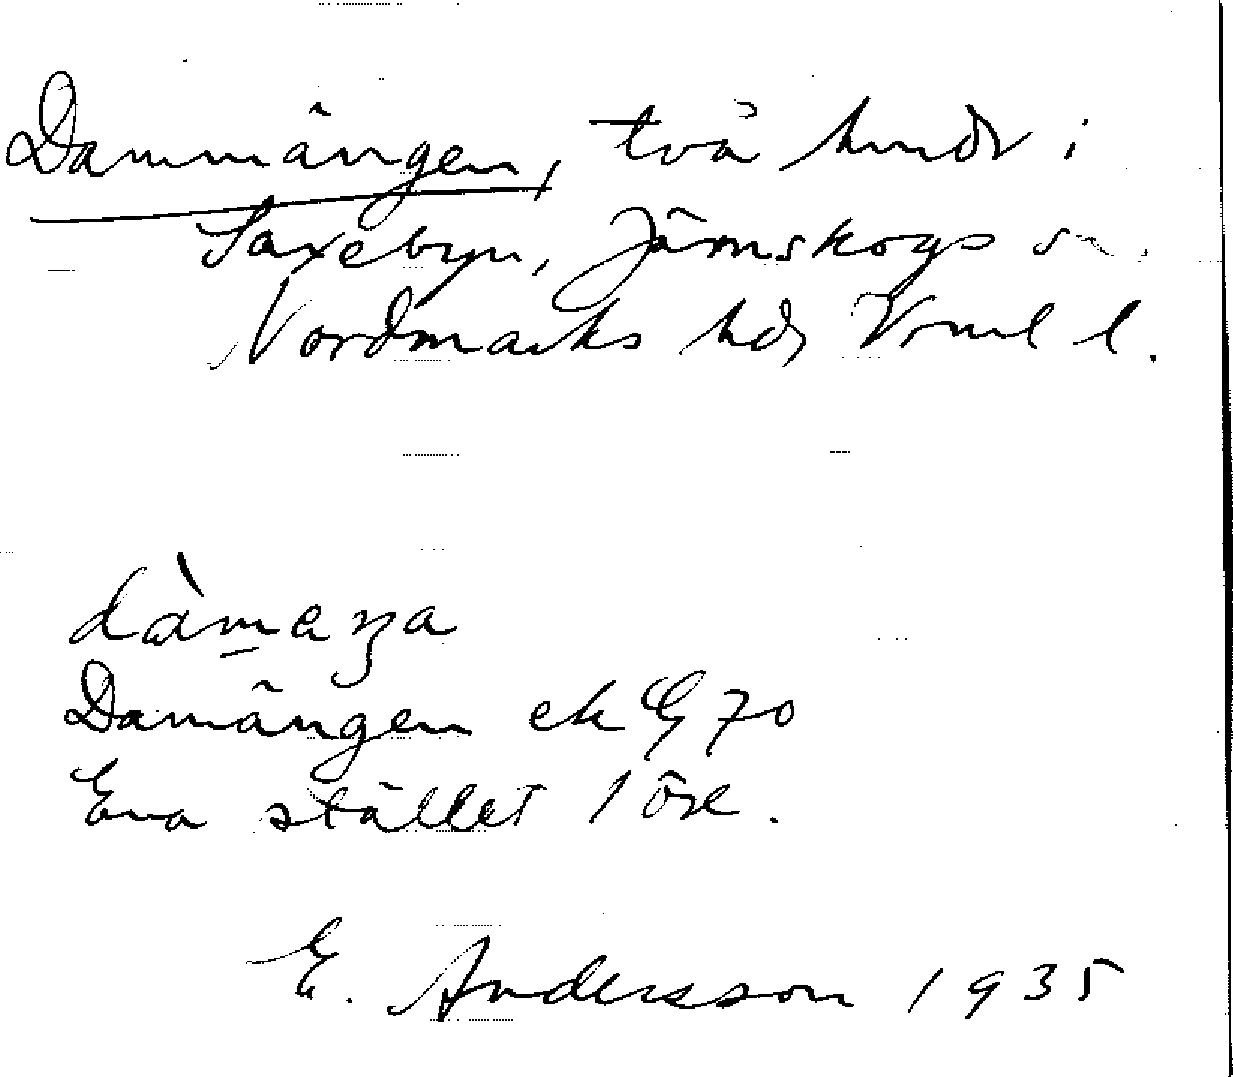 Dammängen, två hmdr i
Saxebyn, Järnskogs sn.
Nordmarks hd, Vrml l.
dàmeŋa
Damängen ek G 70
Ena stället 1 öre.
E. Andersson 1935